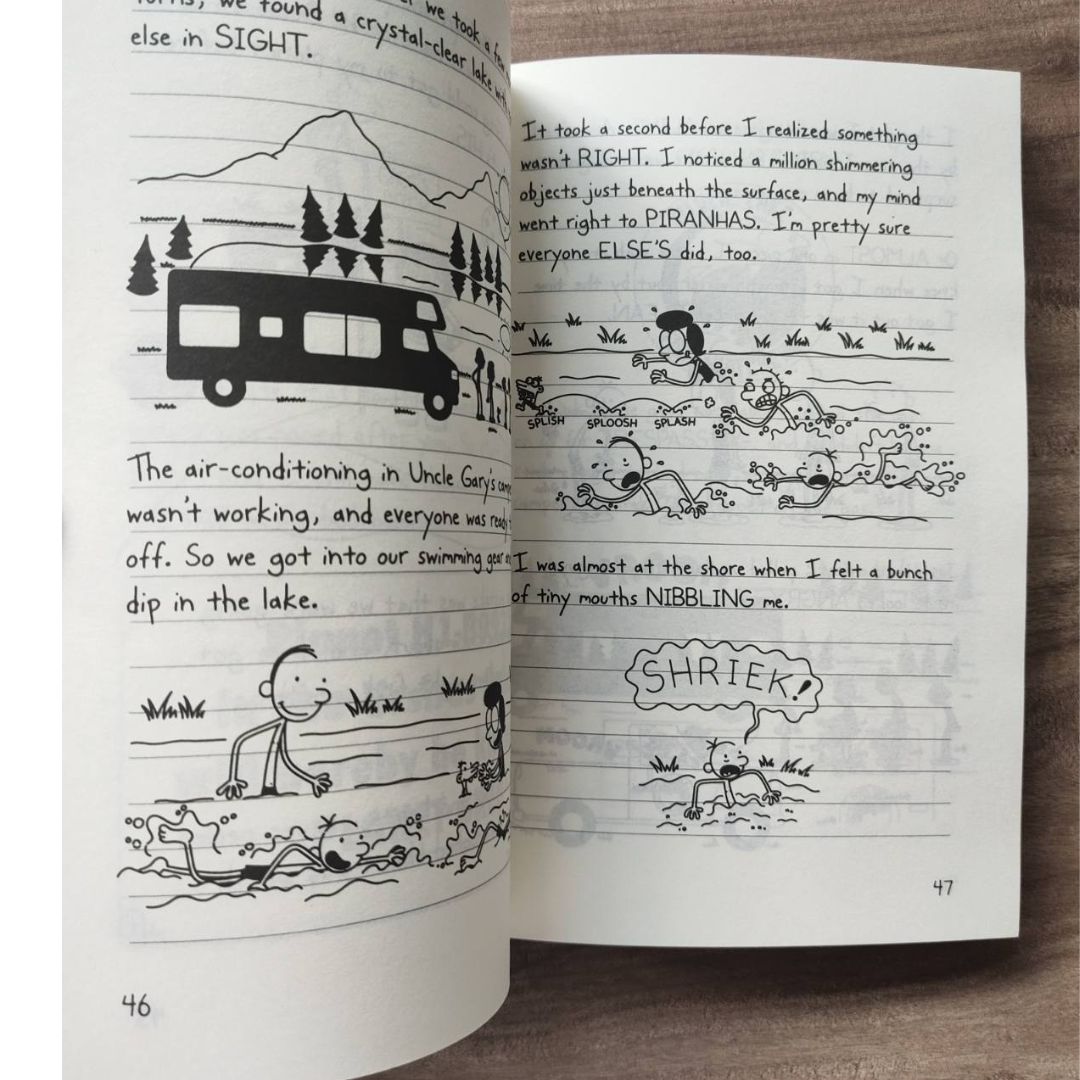 we took a few
we found a crystal-clear lake
else in SIGHT.
The air-conditioning in Uncle Gary's
wasn't working, and everyone was ready
off. So we got into our swimming gear
dip in the lake.
46
It took a second before I realized something
wasn't RIGHT. I noticed a million shimmering
objects just beneath the surface, and my mind
went right to PIRANHAS. I'm pretty sure
everyone ELSE'S did, too.
SPLISH SPLOOSH SPLASH
I was almost at the shore when I felt a bunch
of tiny mouths NIBBLING me.
SHRIEK!
47